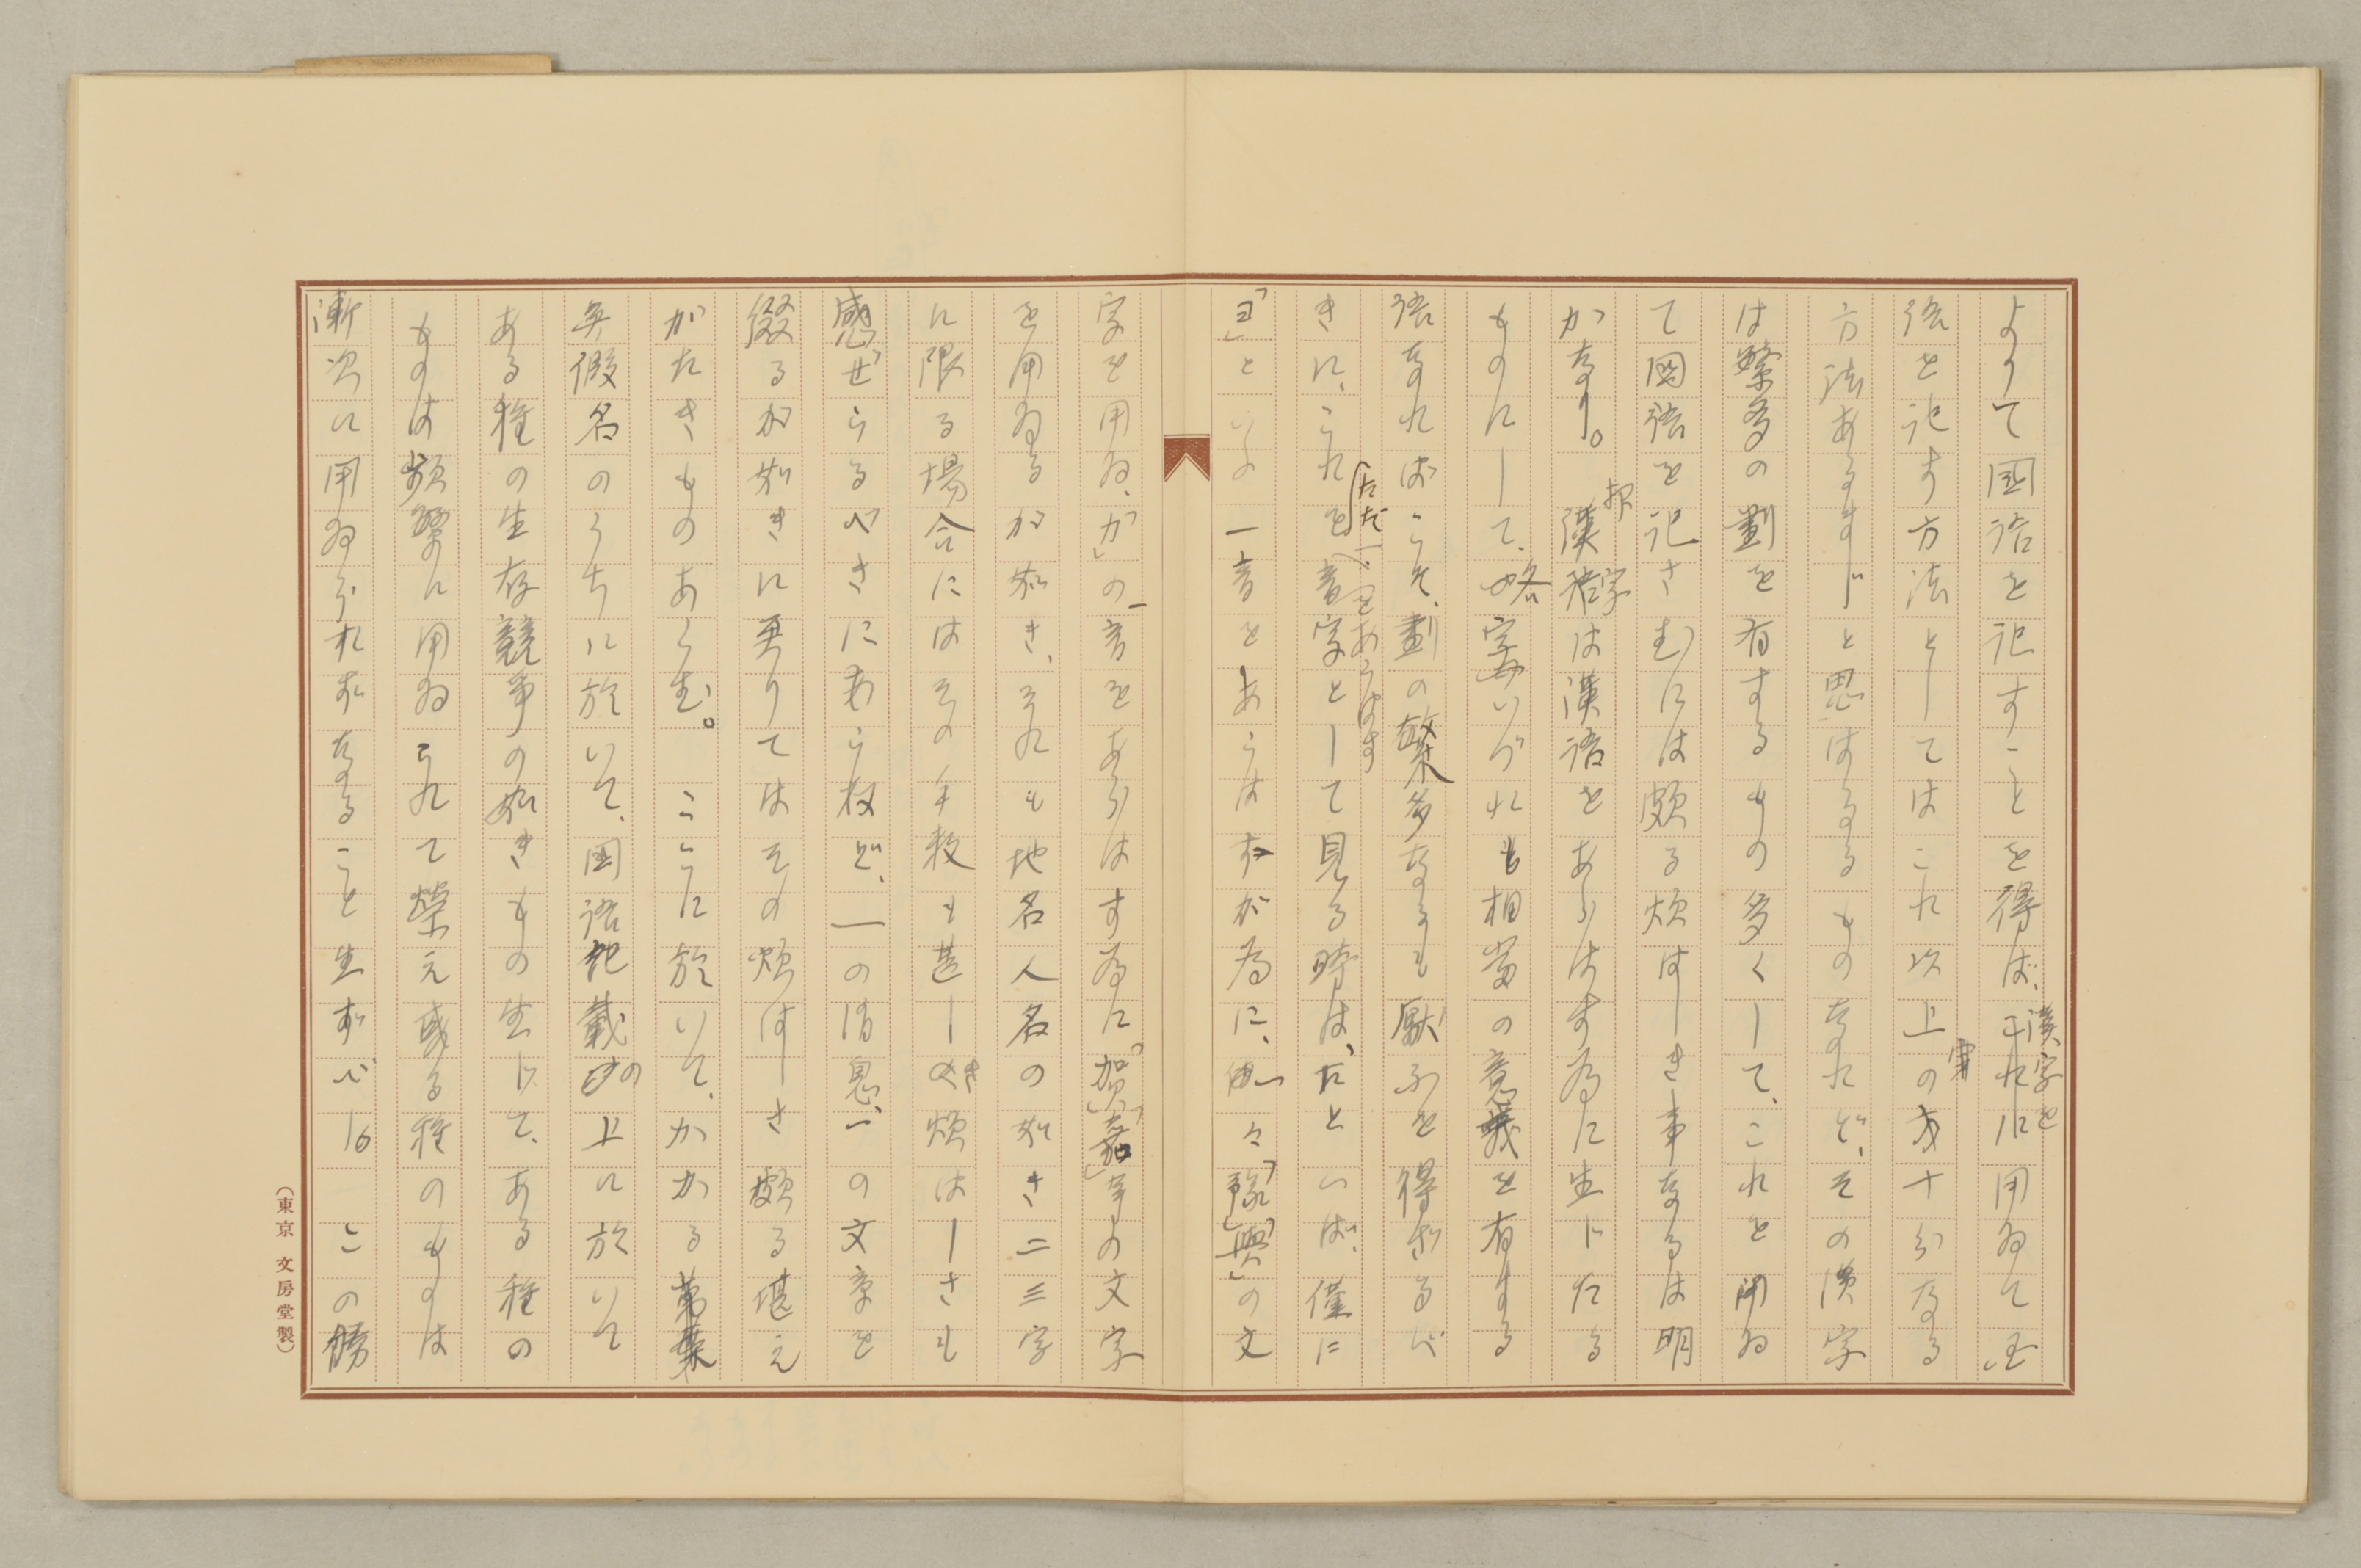 よりて國語を記すことを得ば、漢字を用ゐて國
語を記す方法としてはこれ以上の完十分なる
方法あるまじと思はるるものなれど、その漢字
は繁多の劃を有するもの多くして、これを用ゐ
て國語を記さむには頗る煩はしき事なるは明
かなり。抑漢字は漢語をあらはす為に生じたる
ものにして、略字いづれも相當の意義を有する
語なればこそ、劃の繁多なるも厭ふを得ざるべ
きに、これを(ただ一音をあらはす)音字として見る時は、たとへば、僅に
「ヨ」といふ一音をあらはすが為に、一々「豫」「與」の文
字を用ゐ、「か」の一音をあらはす為に「賀」「嘉」等の文字
を用ゐるが如き、それも地名人名の如き二三字
に限る場合にはその手数も甚しき煩はしさも
感ぜらるべきにあらねど、一の消息、一の文章を
綴るが如きに至りてはその煩はしさ頗る堪え
がたきものあらむ。ここに於いて、かかる萬葉
假名のうちに於いて、国語記載の上に於いて
ある種の生存競争の如きもの生じて、ある種の
ものは頻繁に用ゐられて榮え或る種のものは
漸次に用ゐられずなること生ずべし。この勝
(東京 文房堂製)